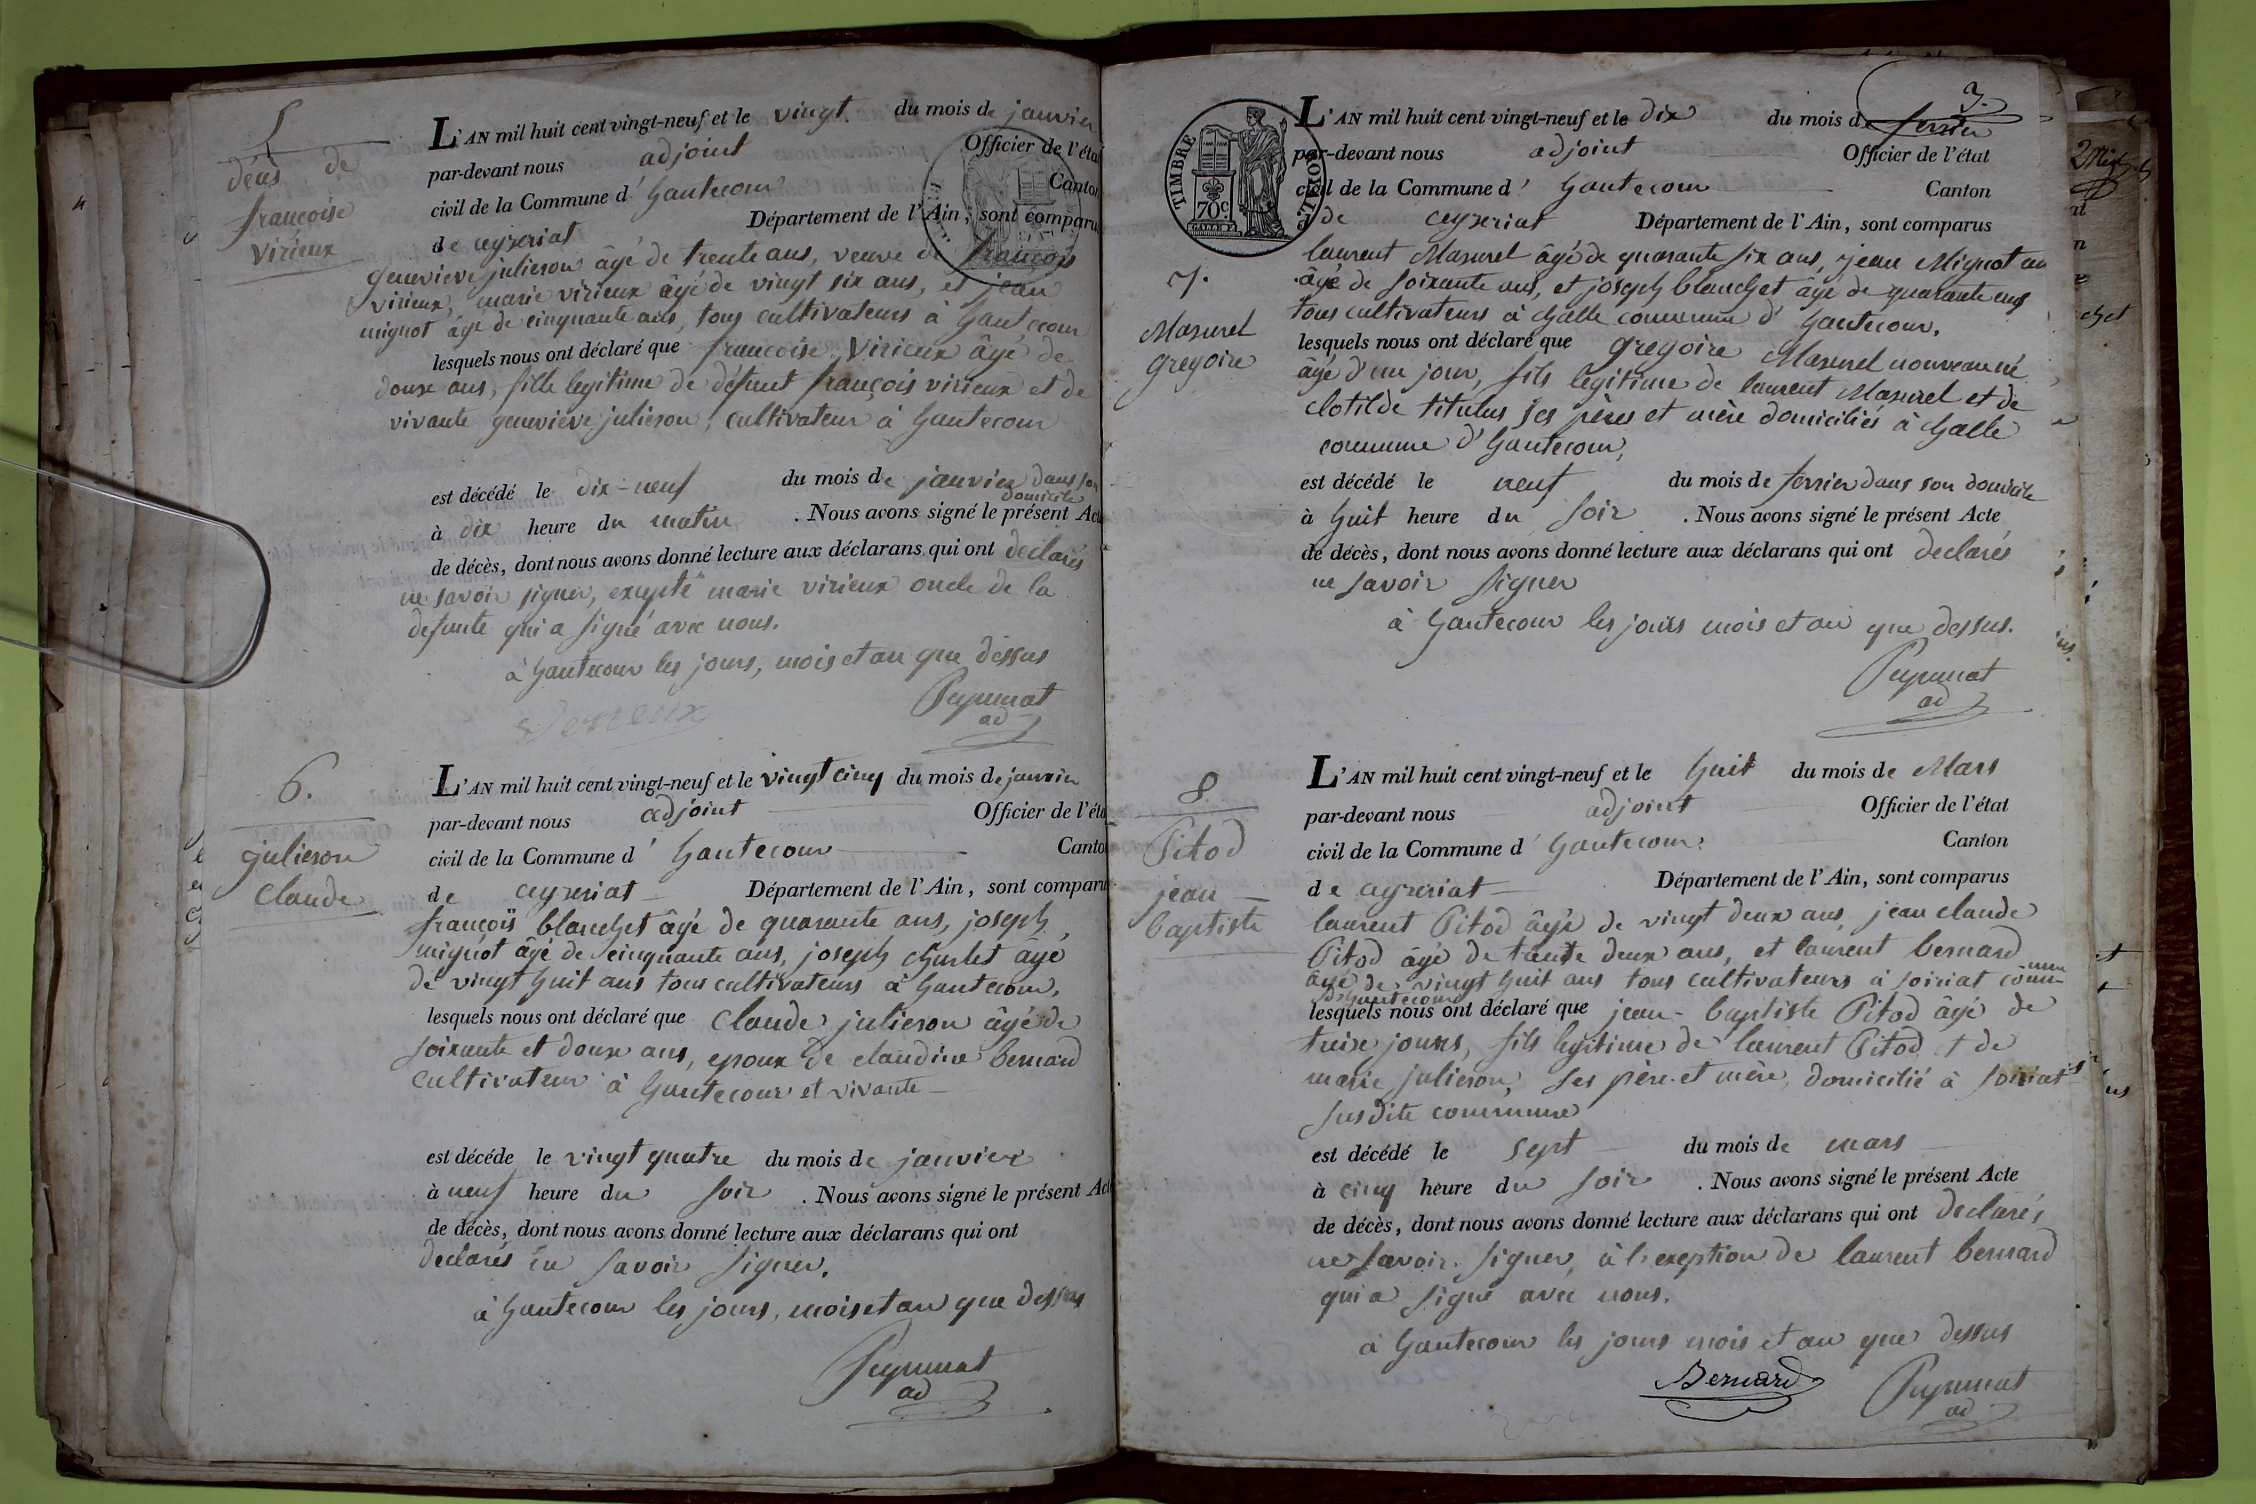 5
décès de
françoise
virieux
L'AN mil huit cent vingt-neuf et le vingt du mois de janvier
par-devant nous adjoint Officier de l'état
civil de la Commune d' hautecour Canton
de ceyzeriat Département de l'Ain, sont comparus
genevieve julieron âgé de trente ans, veuve de françois
virieux, marie virieux âgé de vingt six ans, et jean
mignot âgé de cinquante ans, tous cultivateurs à hautecour
lesquels nous ont déclaré que françoise Virieux âgé de
douze ans, fille legitime de défunt françois virieux et de
vivante genevieve julieron, cultivateur à hautecour
est décédé le dix-neuf du mois de janvier dans son
domicile
à dix heure du matin . Nous avons signé le présent Acte
de décès, dont nous avons donné lecture aux déclarans qui ont declarés
ne savoir signer, excepté marie virieux oncle de la
defunte qui a signé avec nous.
à hautecour les jours, mois et an que dessus
Verieux
ad
6.
julieron
Claude
L'AN mil huit cent vingt-neuf et le vingt cinq du mois de janvier
par-devant nous adjoint Officier de l'état
civil de la Commune d' hautecour Canton
de ceyzeriat Département de l'Ain, sont comparus
françois blanchet âgé de quarante ans, joseph
mignot âgé de cinquante ans, joseph churlet âgé
de vingt huit ans tous cultivateurs à hautecour,
lesquels nous ont déclaré que Claude julieron âgé de
soixante et douze ans, epoux de claudine bernard
cultivateur à hautecour et vivante
est décéde le vingt quatre du mois de janvier
à neuf heure du soir . Nous avons signé le présent Acte
de décès, dont nous avons donné lecture aux déclarans qui ont
declarés ne savoir signer.
à hautecour les jours, mois et an que dessus
ad
3.
TIMBRE ROYAL
70c
L'AN mil huit cent vingt-neuf et le dix du mois de fevrier
par-devant nous adjoint Officier de l'état
civil de la Commune d' hautecour Canton
de ceyzeriat Département de l'Ain, sont comparus
7.
Masurel
gregoire
laurent Masurel âgé de quarante six ans, jean Mignot
âgé de soixante ans, et joseph blanchet âgé de quarante ans
tous cultivateurs à challe commune d' hautecour.
lesquels nous ont déclaré que gregoire Masurel nouveau né
âgé d'un jour, fils legitime de laurent Masurel et de
clotilde titulus ses pères et mère domiciliés à challe
commune d'hautecour,
est décédé le neuf du mois de fevrier dans son domicile
à huit heure du soir . Nous avons signé le présent Acte
de décès, dont nous avons donné lecture aux déclarans qui ont declarés
ne savoir signer
à hautecour les jours mois et an que dessus.
ad
8
Pitod
jean
baptiste
L'AN mil huit cent vingt-neuf et le huit du mois de Mars
par-devant nous adjoint Officier de l'état
civil de la Commune d' hautecour Canton
de ceyzeriat Département de l'Ain, sont comparus
laurent Pitod âgé de vingt deux ans, jean claude
Pitod âgé de trante deux ans, et laurent bernard
âgé de vingt huit ans tous cultivateurs à soiriat commune
d'hautecour
lesquels nous ont déclaré que jean-baptiste Pitod âgé de
treize jours, fils legitime de laurent Pitod et de
marie julieron, ses père et mère, domicilié à soiriat
susdite commune
est décédé le sept du mois de mars
à cinq heure du soir . Nous avons signé le présent Acte
de décès, dont nous avons donné lecture aux déclarans qui ont declarés
ne savoir signer, à l'exeption de laurent bernard
qui a signé avec nous.
à hautecour les jours mois et an que dessus
Bernard
ad